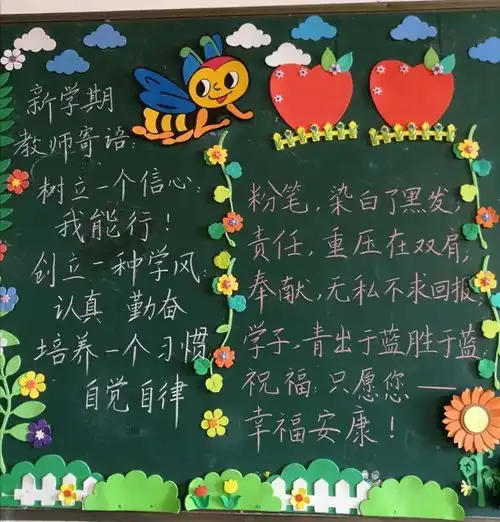 新学期
教师寄语:
树立一个信心:
我能行!
创立一种学风:
认真 勤奋
培养一个习惯
自觉自律
粉笔,染白了黑发,
责任,重压在双肩,
奉献,无私不求回报,
学子-青出于蓝胜于蓝
祝福:只愿您——
幸福安康!